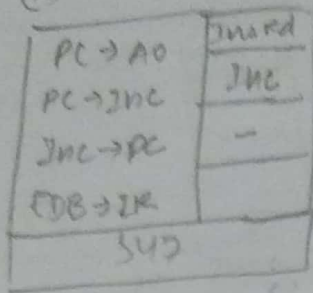 PC → AO
PC → Inc
Inc → PC
EDB → IR
Inc
-